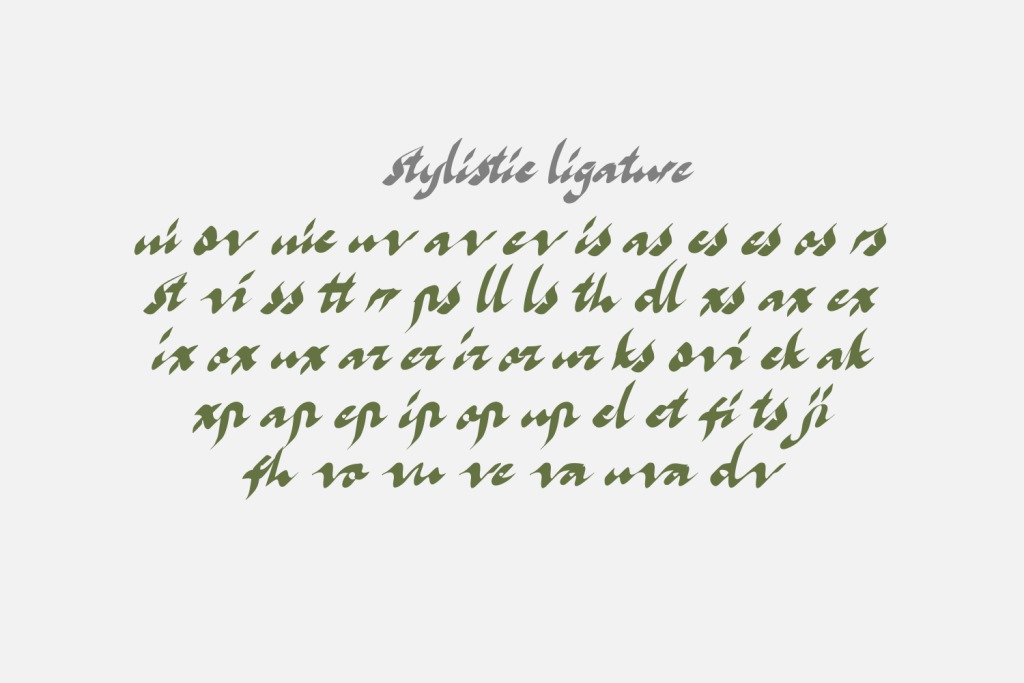 stylistic ligature
ui ov uie uv av ev is as cs es os rs
st vi ss tt rr ps ll ls th dl xs ax ex
ix ox ux ar er ir or ur ks ovi ck ak
xp ap ep ip op up el et fi ts ji
fh vo vu ve va uva dv